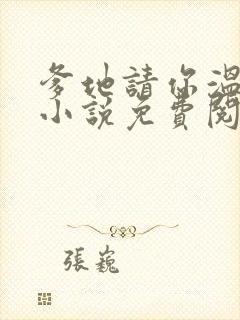 爹地請你溫
小說免費閱
張巍